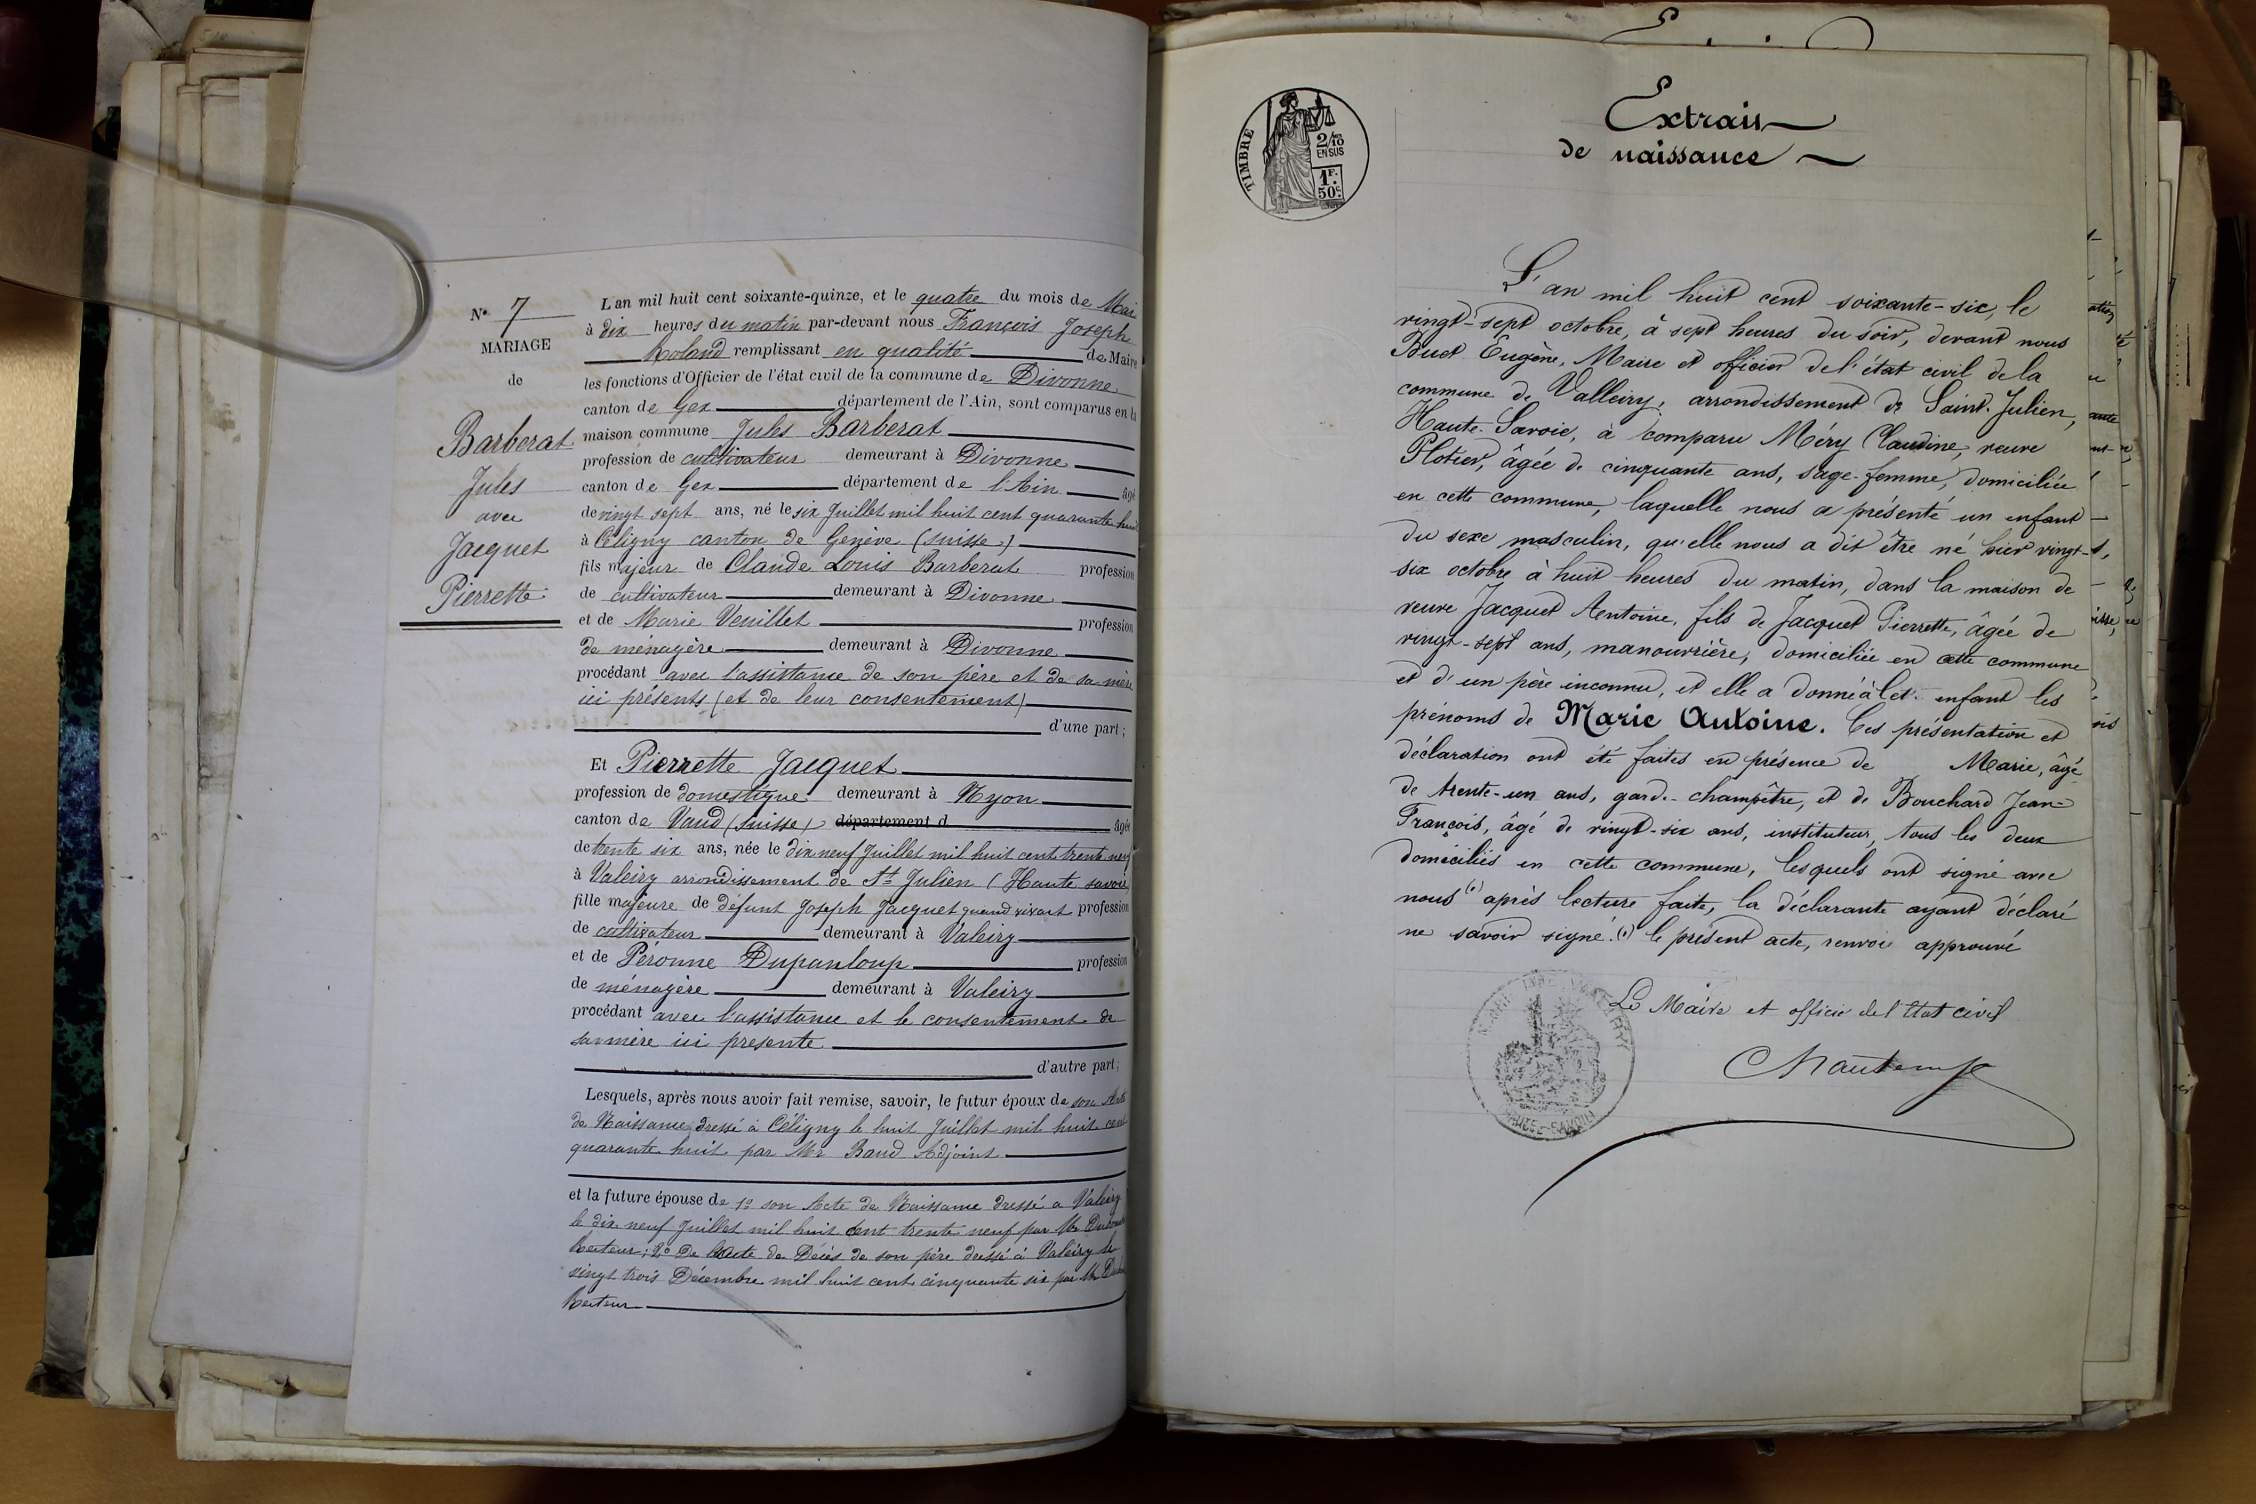 N° 7
MARIAGE
de
Barberat
Jules
avec
Jacquet
Pierrette
L'an mil huit cent soixante-quinze, et le quatre du mois de Mai
à dix heures du matin par-devant nous François Joseph
Roland remplissant en qualité de Maire
les fonctions d'Officier de l'état civil de la commune de Divonne
canton de Gex département de l'Ain, sont comparus en la
maison commune Jules Barberat
profession de cultivateur demeurant à Divonne
canton de Gex département de l'Ain âgé
de vingt sept ans, né le six Juillet mil huit cent quarante huit
à Céligny canton de Genève (suisse)
fils majeur de Claude Louis Barberat profession
de cultivateur demeurant à Divonne
et de Marie Venillet profession
de ménagère demeurant à Divonne
procédant avec l'assistance de son père et de sa mère
ici présents (et de leur consentement)
d'une part ;
Et Pierrette Jacquet
profession de domestique demeurant à Nyon
canton de Vaud (suisse) département d âgée
de trente six ans, née le dix neuf Juillet mil huit cent trente neuf
à Valeiry arrondissement de St Julien (Haute savoie
fille majeure de défunt Joseph Jacquet quand vivant profession
de cultivateur demeurant à Valeiry
et de Péronne Dupanloup profession
de ménagère demeurant à Valeiry
procédant avec l'assistance et le consentement de
sa mère ici presente
d'autre part ;
Lesquels, après nous avoir fait remise, savoir, le futur époux de son Acte
de Naissance dressé à Céligny le huit Juillet mil huit cent
quarante huit par Mr Baud Adjoint
et la future épouse de 1° son Acte de Naissance dressé a Valeiry
le dix neuf Juillet mil huit cent trente neuf par Mr
Recteur ; 2° De l'acte de Décès de son père dressé à Valeiry le
vingt trois Décembre mil huit cent cinquante six par Mr
Recteur
TIMBRE
2/10
EN SUS
1F.
50c.
Extrait
de naissance
L'an mil huit cent soixante-six, le
vingt-sept octobre, à sept heures du soir, devant nous
Buet Eugène, Maire et officier de l'état civil de la
commune de Valleiry, arrondissement de Saint-Julien,
Haute-Savoie, à comparu Méry Claudine, veuve
Plotier, âgée de cinquante ans, sage-femme, domiciliée
en cette commune, laquelle nous a présenté un enfant
du sexe masculin, qu'elle nous a dit être né hier vingt-
six octobre à huit heures du matin, dans la maison de
veuve Jacquet Antoine, fils de Jacquet Pierrette, âgée de
vingt-sept ans, manouvrière, domiciliée en cette commune
et d'un père inconnu, et elle a donné à cet enfant les
prénoms de Marie Antoine. Ces présentation et
déclaration ont été faites en présence de Marie, âgé
de trente-un ans, garde-champêtre, et de Bouchard Jean
François, âgé de vingt-six ans, instituteur, tous les deux
domiciliés en cette commune, lesquels ont signé avec
nous (1) après lecture faite, la déclarante ayant déclaré
ne savoir signé. (1) le présent acte, renvoi approuvé
Le Maire et officier de l'Etat civil